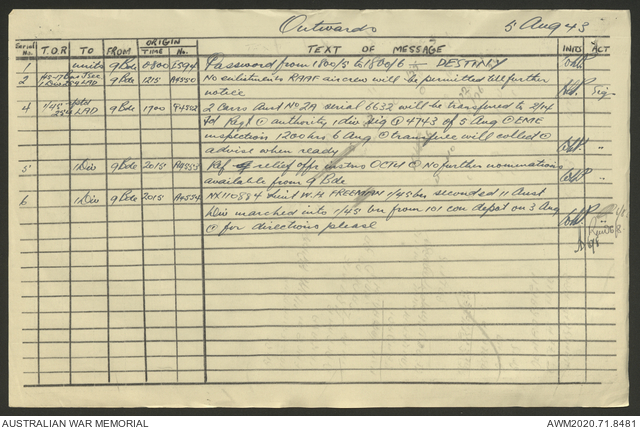 Outwards 5 Aug 43
Serial No. T.O.R TO FROM ORIGIN TIME No. TEXT OF MESSAGE INITS ACT
1 units 9 Bde 0800 Password from 1800/5 to 1800/6 — DESTINY
2 9 Bde 1215 A9550 No enlistments RAAF aircrew will be permitted till further
LAD notice
4 1/45 9 Bde 1700 2 Cars Aust No 2A serial 6632 will be transferred to 2/14
LAD Fd Regt @ authority 1 div sig Q 4743 of 5 Aug @ EME
inspection 1200 hrs 6 Aug @ transferee will collect @
advise when ready
5 1 Div 9 Bde 2015 A9553 Ref relief offr instrs @ No further nominations
available from 9 Bde
6 1 Div 9 Bde 2015 A9554 NX110584 Lieut W.H FREEMAN 1/45 bn seconded 11 Aust
Div marched into 1/45 bn from 101 con depot on 3 Aug
@ for directions please
AUSTRALIAN WAR MEMORIAL AWM2020.71.8481